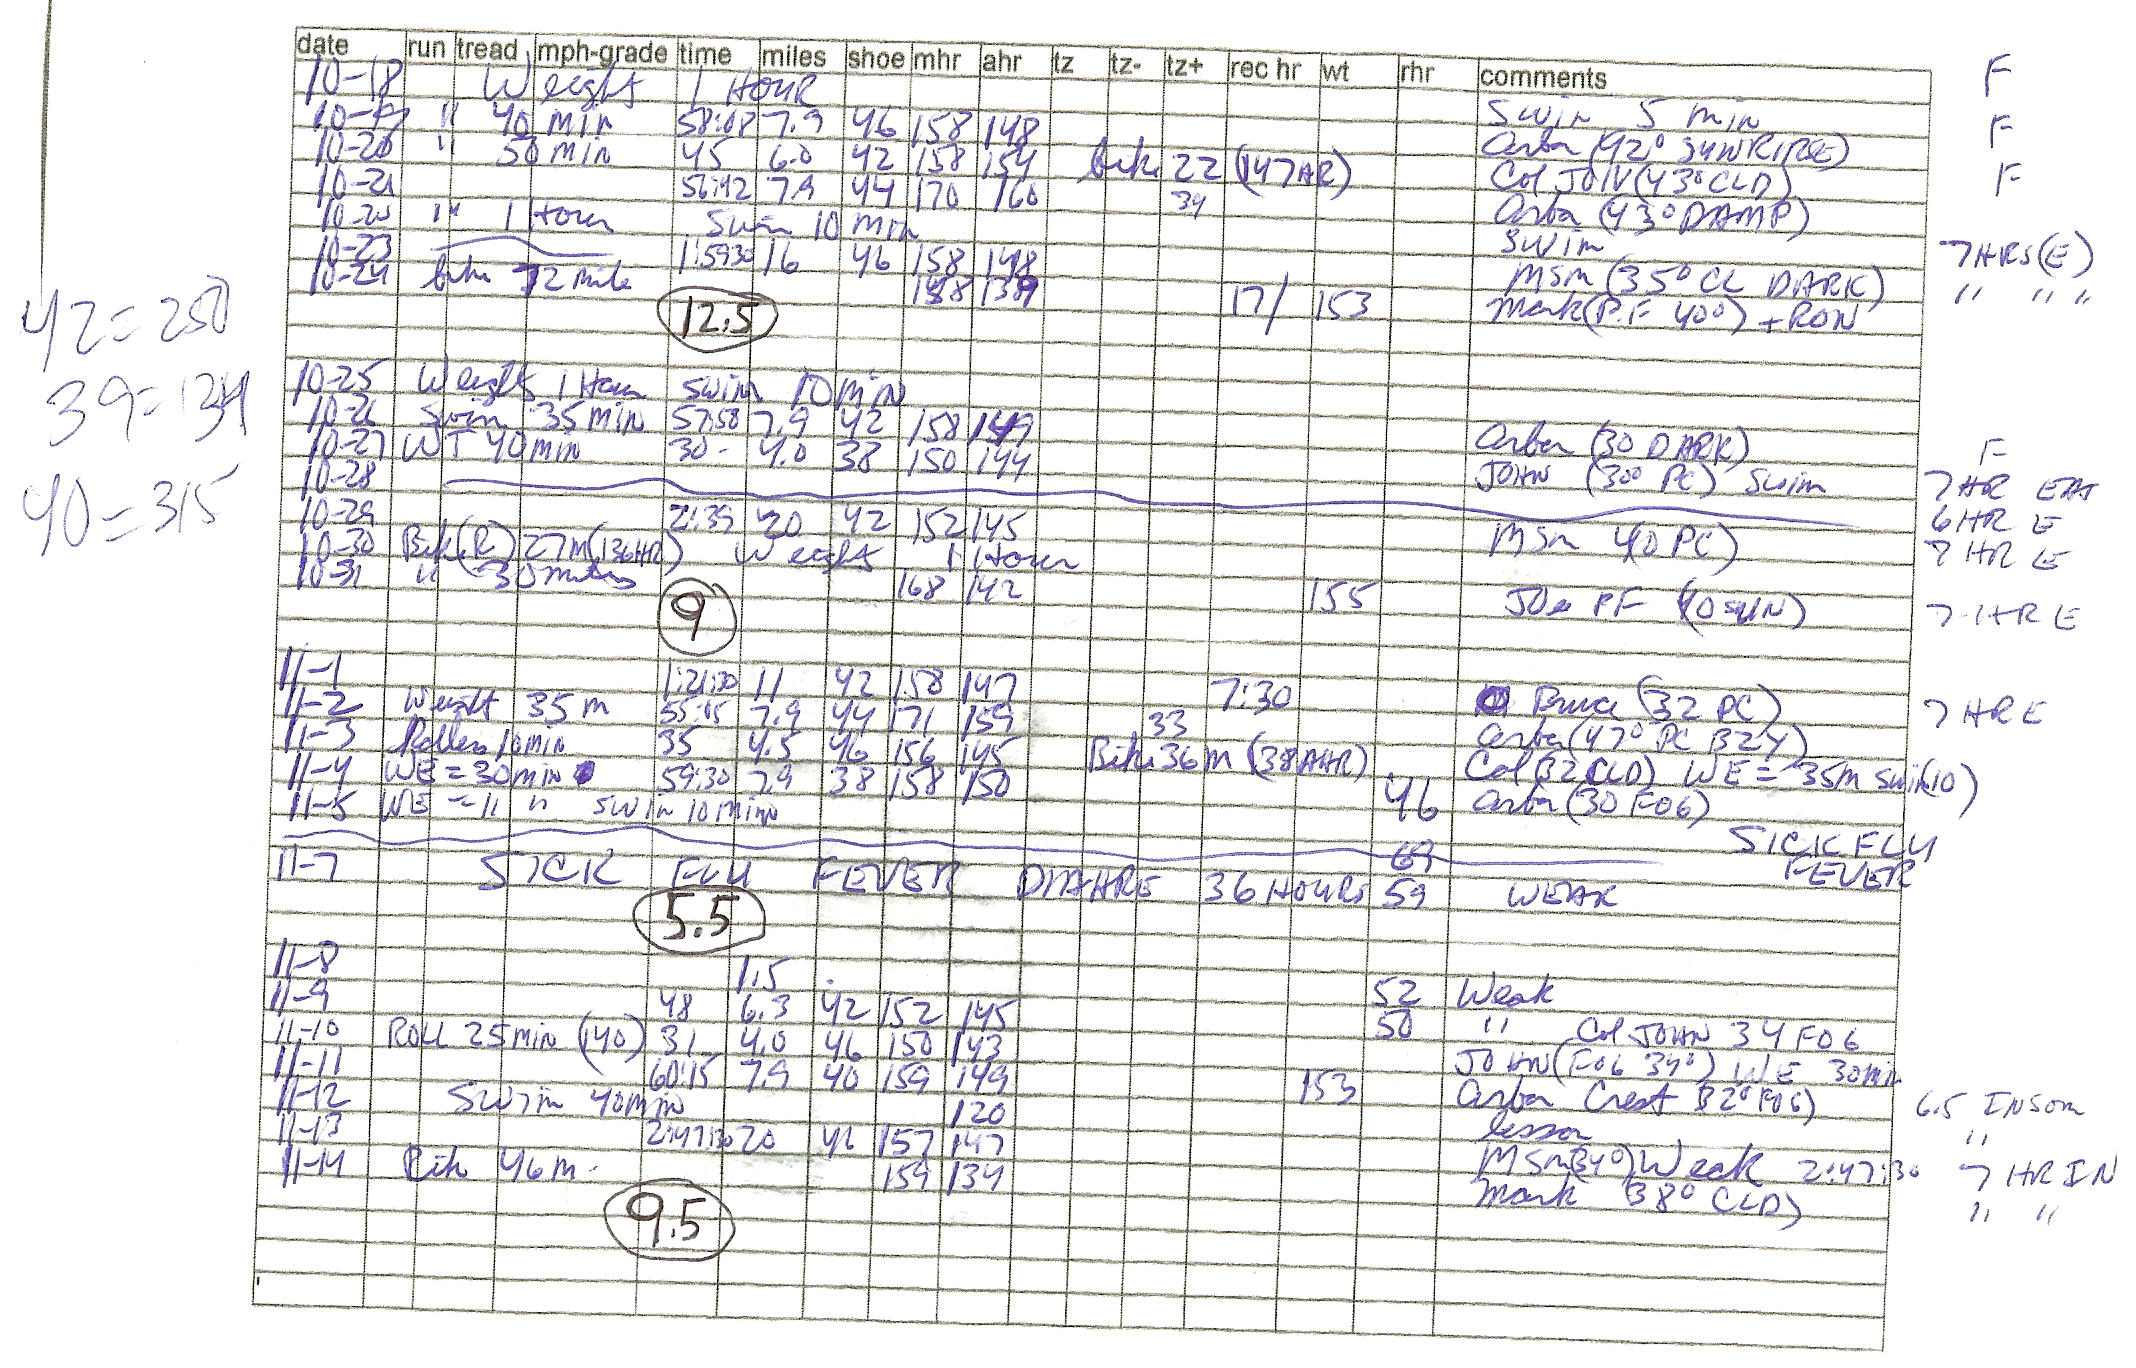 date run tread mph-grade time miles shoe mhr ahr tz tz- tz+ rec hr wt rhr comments
10-18 Weight 1 HOUR Swim 5 min F
10-19 " 40 min 58:08 7.9 46 158 148 (42° SUNRIRSE) F
10-20 " 50 min 45 6.0 42 158 154 bike 22 (147 HR) Col JOHN (43° CLD) F
10-21 56:42 7.9 44 170 160 34 (43° DAMP)
" 1 Hour Swim 10 min Swim 7 HRS (E)
10-23 1:59:30 16 46 158 148 MSM (35° CL DARK) " " "
10-24 bike 72 mile 138 17/ 153 Mark (P.F 40°) + RON
12.5
42 = 250
39 = 134
40 = 315
10-25 Weight 1 Hour Swim 10 min
10-26 Swim 35 MIN 57:58 7.9 42 158 149 (30 DARK) F
10-27 WT 40 min 30- 4.0 38 150 144 JOHN (30° PC) Swim 7 HR EAT
10-28 6 HR E
10-29 2:39 20 42 152 145 MSM 40 PC) 7 HR E
10-30 Bike (R) 27 M (136 HR) Weight 1 Hour
10-31 " 30 miles 168 142 155 JOe PF (40 SUN) 7 HR E
9
11-1 1:21:30 11 42 158 147 7:30 Bruce (32 PC) 7 HR E
11-2 Weight 35 m 55:05 7.9 44 171 159 33 (47° PC BZY)
11-3 Rollers 10 min 35 4.5 46 156 145 Bike 36 M (38 AHR) Col (32 CLD) WE = 35M Swim (10)
11-4 WE = 30 min 59:30 7.9 38 158 150 46 (30 FOG)
11-5 WE = 11 " SWIM 10 MIN
69 SICK FLU FEVER
11-7 SICK FLU FEVER DIAHRE 36 HOURS 59 WEAK
5.5
11-8 1.5 52 Weak
11-9 48 6.3 42 152 145 50 " Col JOHN 34 FOG
11-10 ROLL 25 MIN (140) 31 4.0 46 150 143 JOHN (FOG 34°) WE 30 min
11-11 60:15 7.9 40 159 149 153 Crest 32° FOG) 6.5 INSOM
11-12 Swim 40 min 120 lesson "
11-13 2:47:30 20 42 157 147 MSM (34°) Weak 2:47:30 7 HR IN
11-14 Bike 46 m- 159 134 Mark (38° CLD) " "
9.5